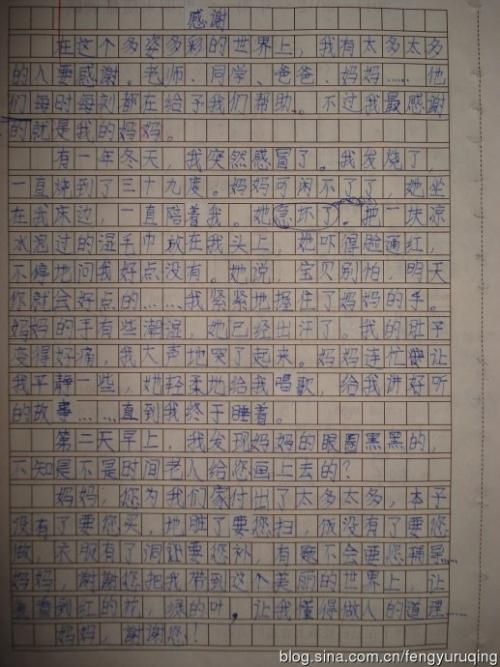 感谢
在这个多姿多彩的世界上，我有太多太多
的人要感谢。老师、同学、爸爸、妈妈……他
们每时每刻都在给予我们帮助。不过我最感谢
的就是我的妈妈。
有一年冬天，我突然感冒了。我发烧了，
一直烧到了三十九度。妈妈可闲不了了，她坐
在我床边，一直陪着我。她急坏了，把一块凉
水泡过的湿手巾放在我头上，她吓得脸通红，
不停地问我好点没有。她说，宝贝别怕，明天
你就会好点的……我紧紧地握住了妈妈的手。
妈妈的手有些潮湿，她已经出汗了。我的肚子
变得好痛，我大声地哭了起来。妈妈连忙让
我平静一些，她轻柔地给我唱歌，给我讲好听
的故事……直到我终于睡着。
第二天早上，我发现妈妈的眼圈黑黑的，
不知是不是时间老人给您画上去的？
妈妈，您为我们家付出了太多太多，本子
没有了要您买，地脏了要您扫，饭没有了要您
做，衣服有了洞让要您补，有题不会要您辅导……
妈妈，谢谢您把我带到这个美丽的世界上，让
我看到红的花，绿的叶，让我懂得做人的道理……
妈妈，谢谢您！
blog.sina.com.cn/fengyuruqing